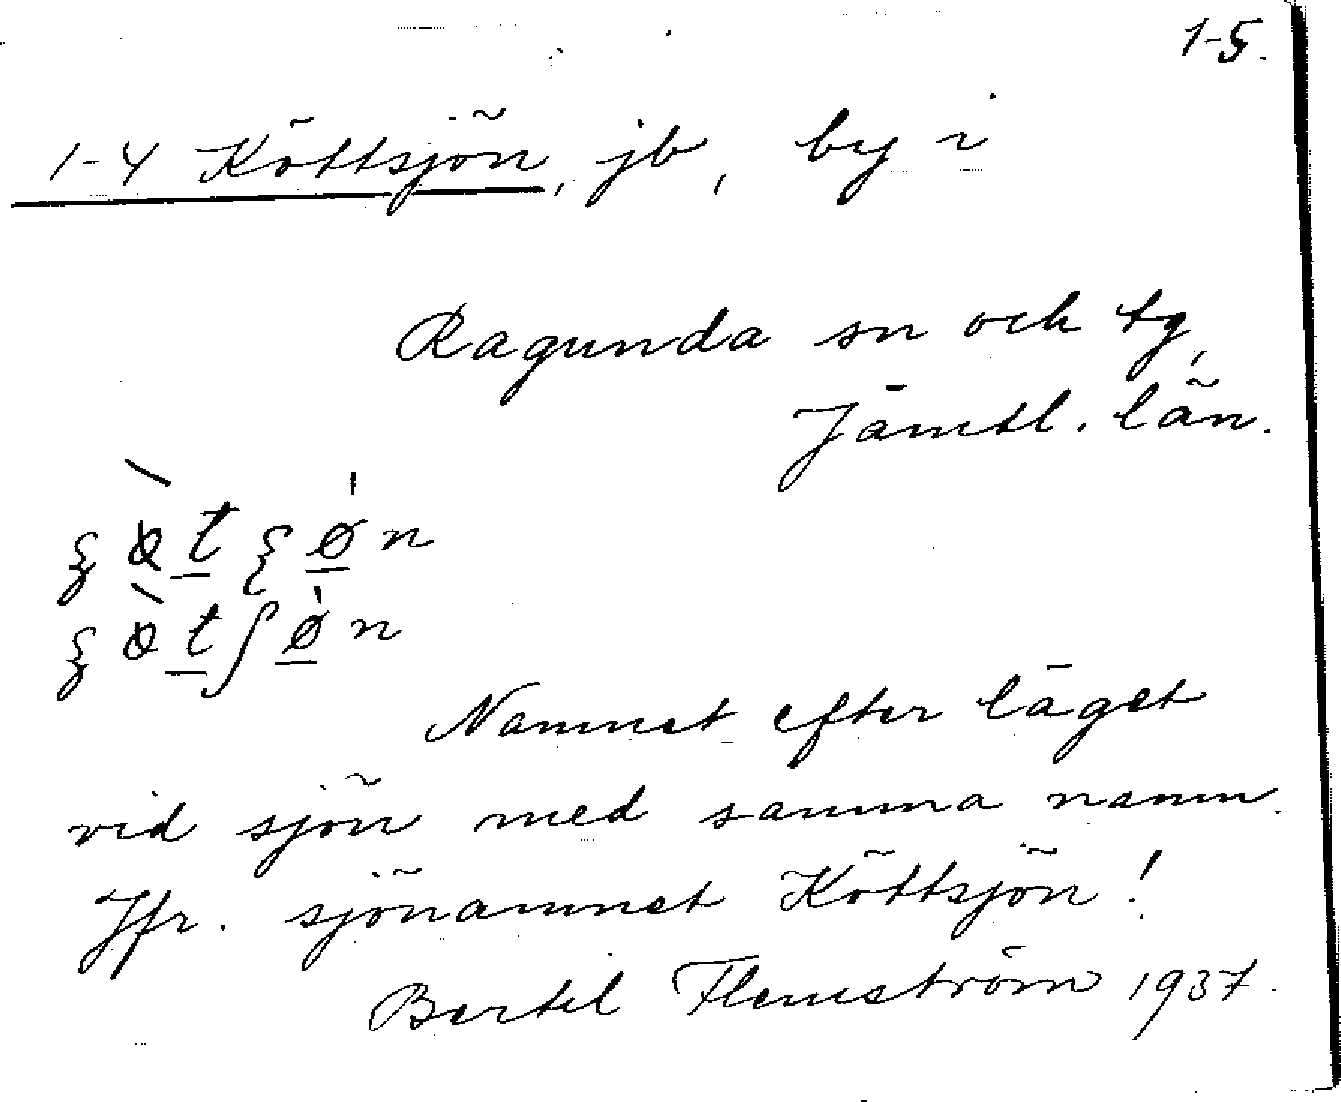 1-5.
1-4 Köttsjön, jb, by i
Ragunda sn och tg,
Jämtl. län.
Namnet efter läget
vid sjön med samma namn.
Jfr. sjönamnet Köttsjön!
Bertil Flemström 1937.